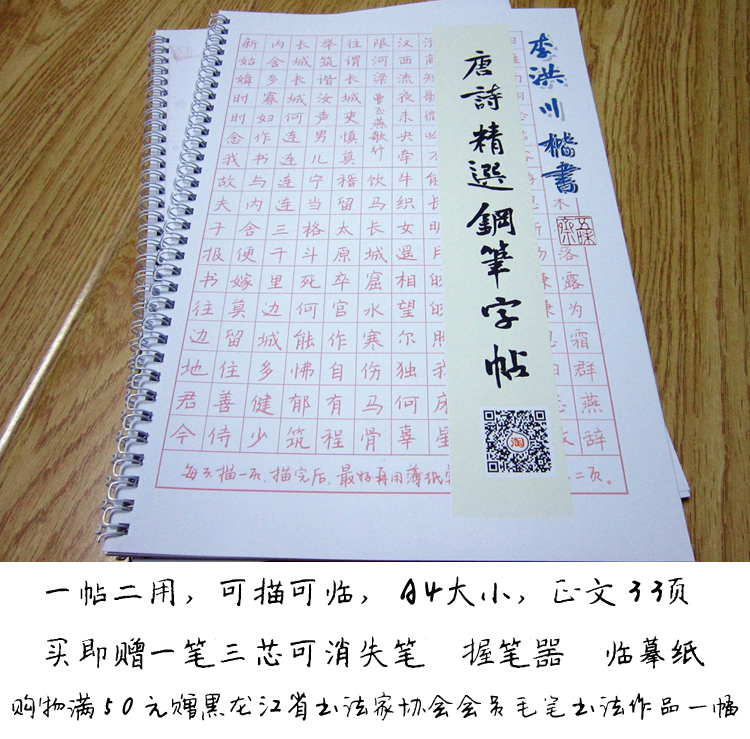 李洪川楷書
唐詩精選鋼筆字帖
落露为霜群燕辞
汉西流夜未央牵牛织女遥相望尔独何辜
限河梁 曹丕燕歌行 饮马长城窟水寒伤马骨
往谓长城吏慎莫稽留太原卒官作自有程
举筑谐汝声男儿宁当格斗死何能怫郁筑
长城长城何连连连连三千里边城多健少
内舍多寡妇作书与内舍便嫁莫留住善侍
新姑嫜时时念我故夫子报书往边地君今
每天描一页.描完后.最好再用薄纸
二页。
一帖二用，可描可临，A4大小，正文33页
买即赠一笔三芯可消失笔 握笔器 临摹纸
购物满50元赠黑龙江省书法家协会会员毛笔书法作品一幅